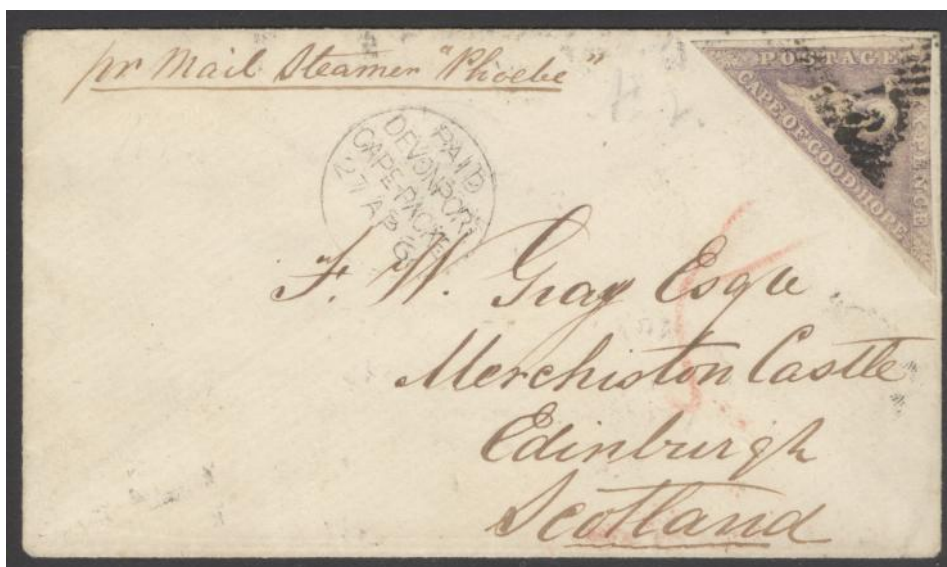 pr Mail Steamer "Phoebe"
POSTAGE
CAPE OF GOOD HOPE
SIXPENCE
PAID
DEVONPORT
CAPE-PACKET
27 AP 6
F. W. Gray Esqre
Merchiston Castle
Edinburgh
Scotland